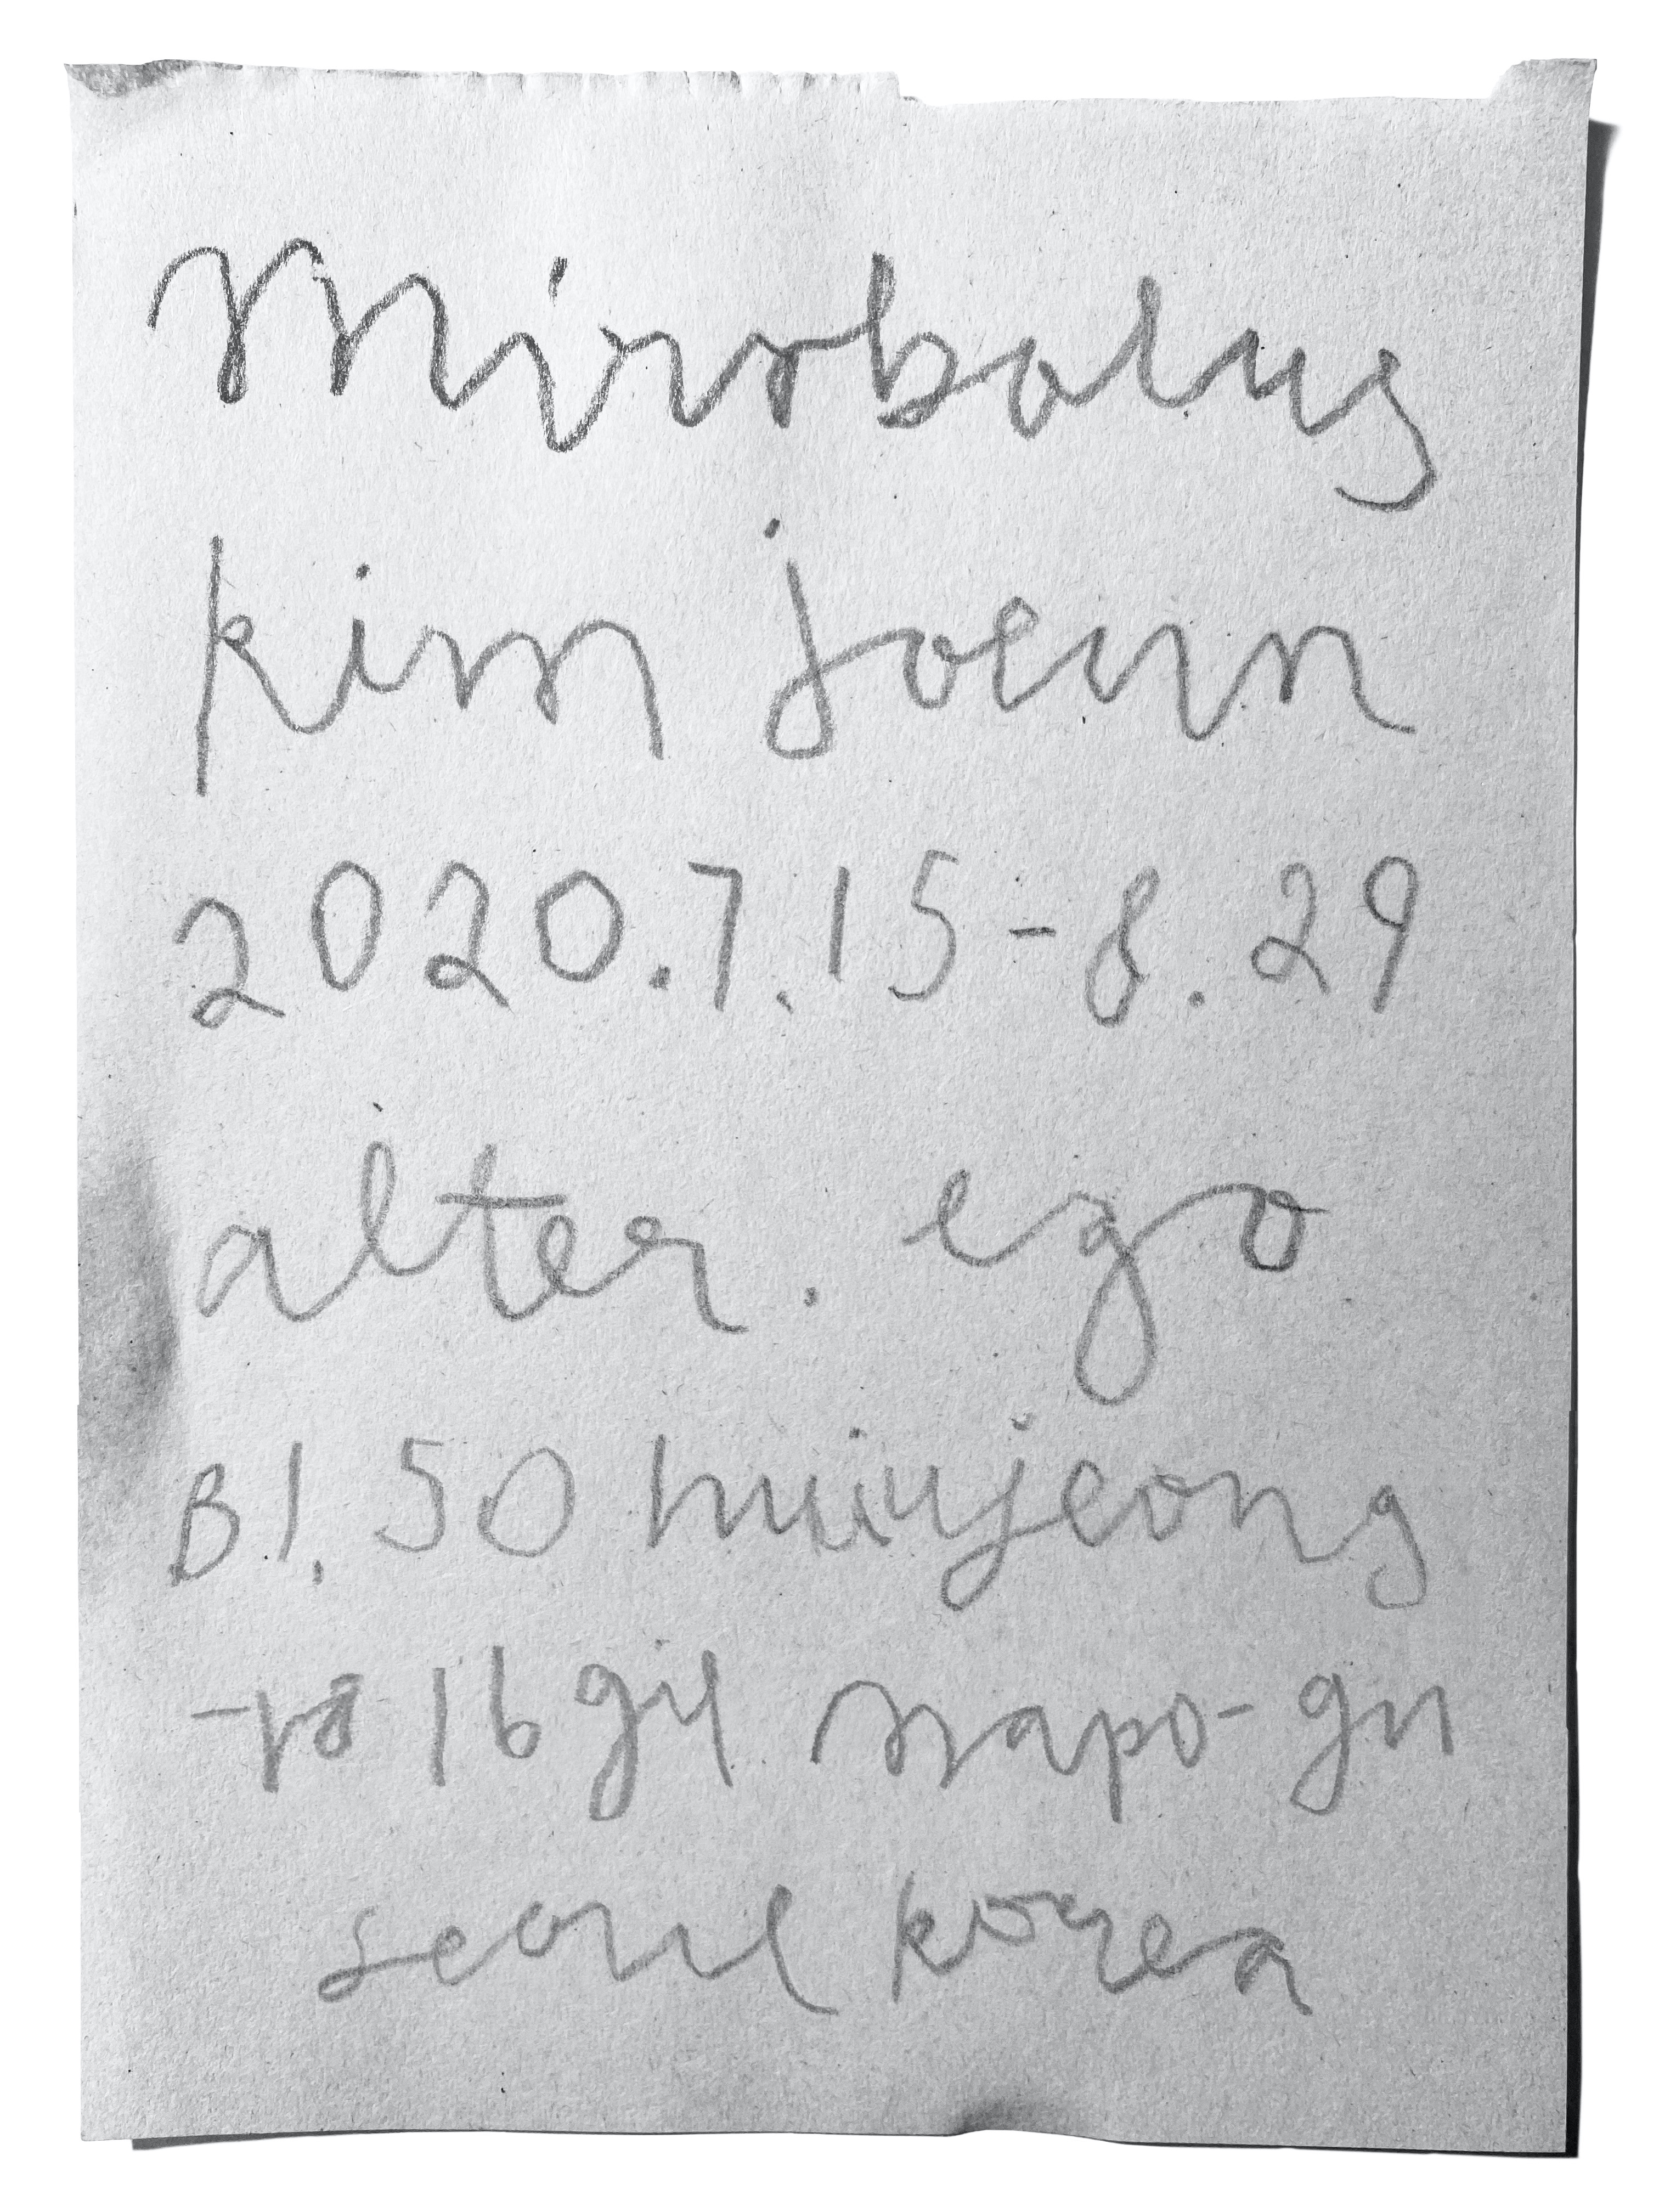 mirobolus
kim joeun
2020.7.15-8.29
alter. ego
B1, 50 huiujeong
-ro 16 gil mapo-gu
seoul korea